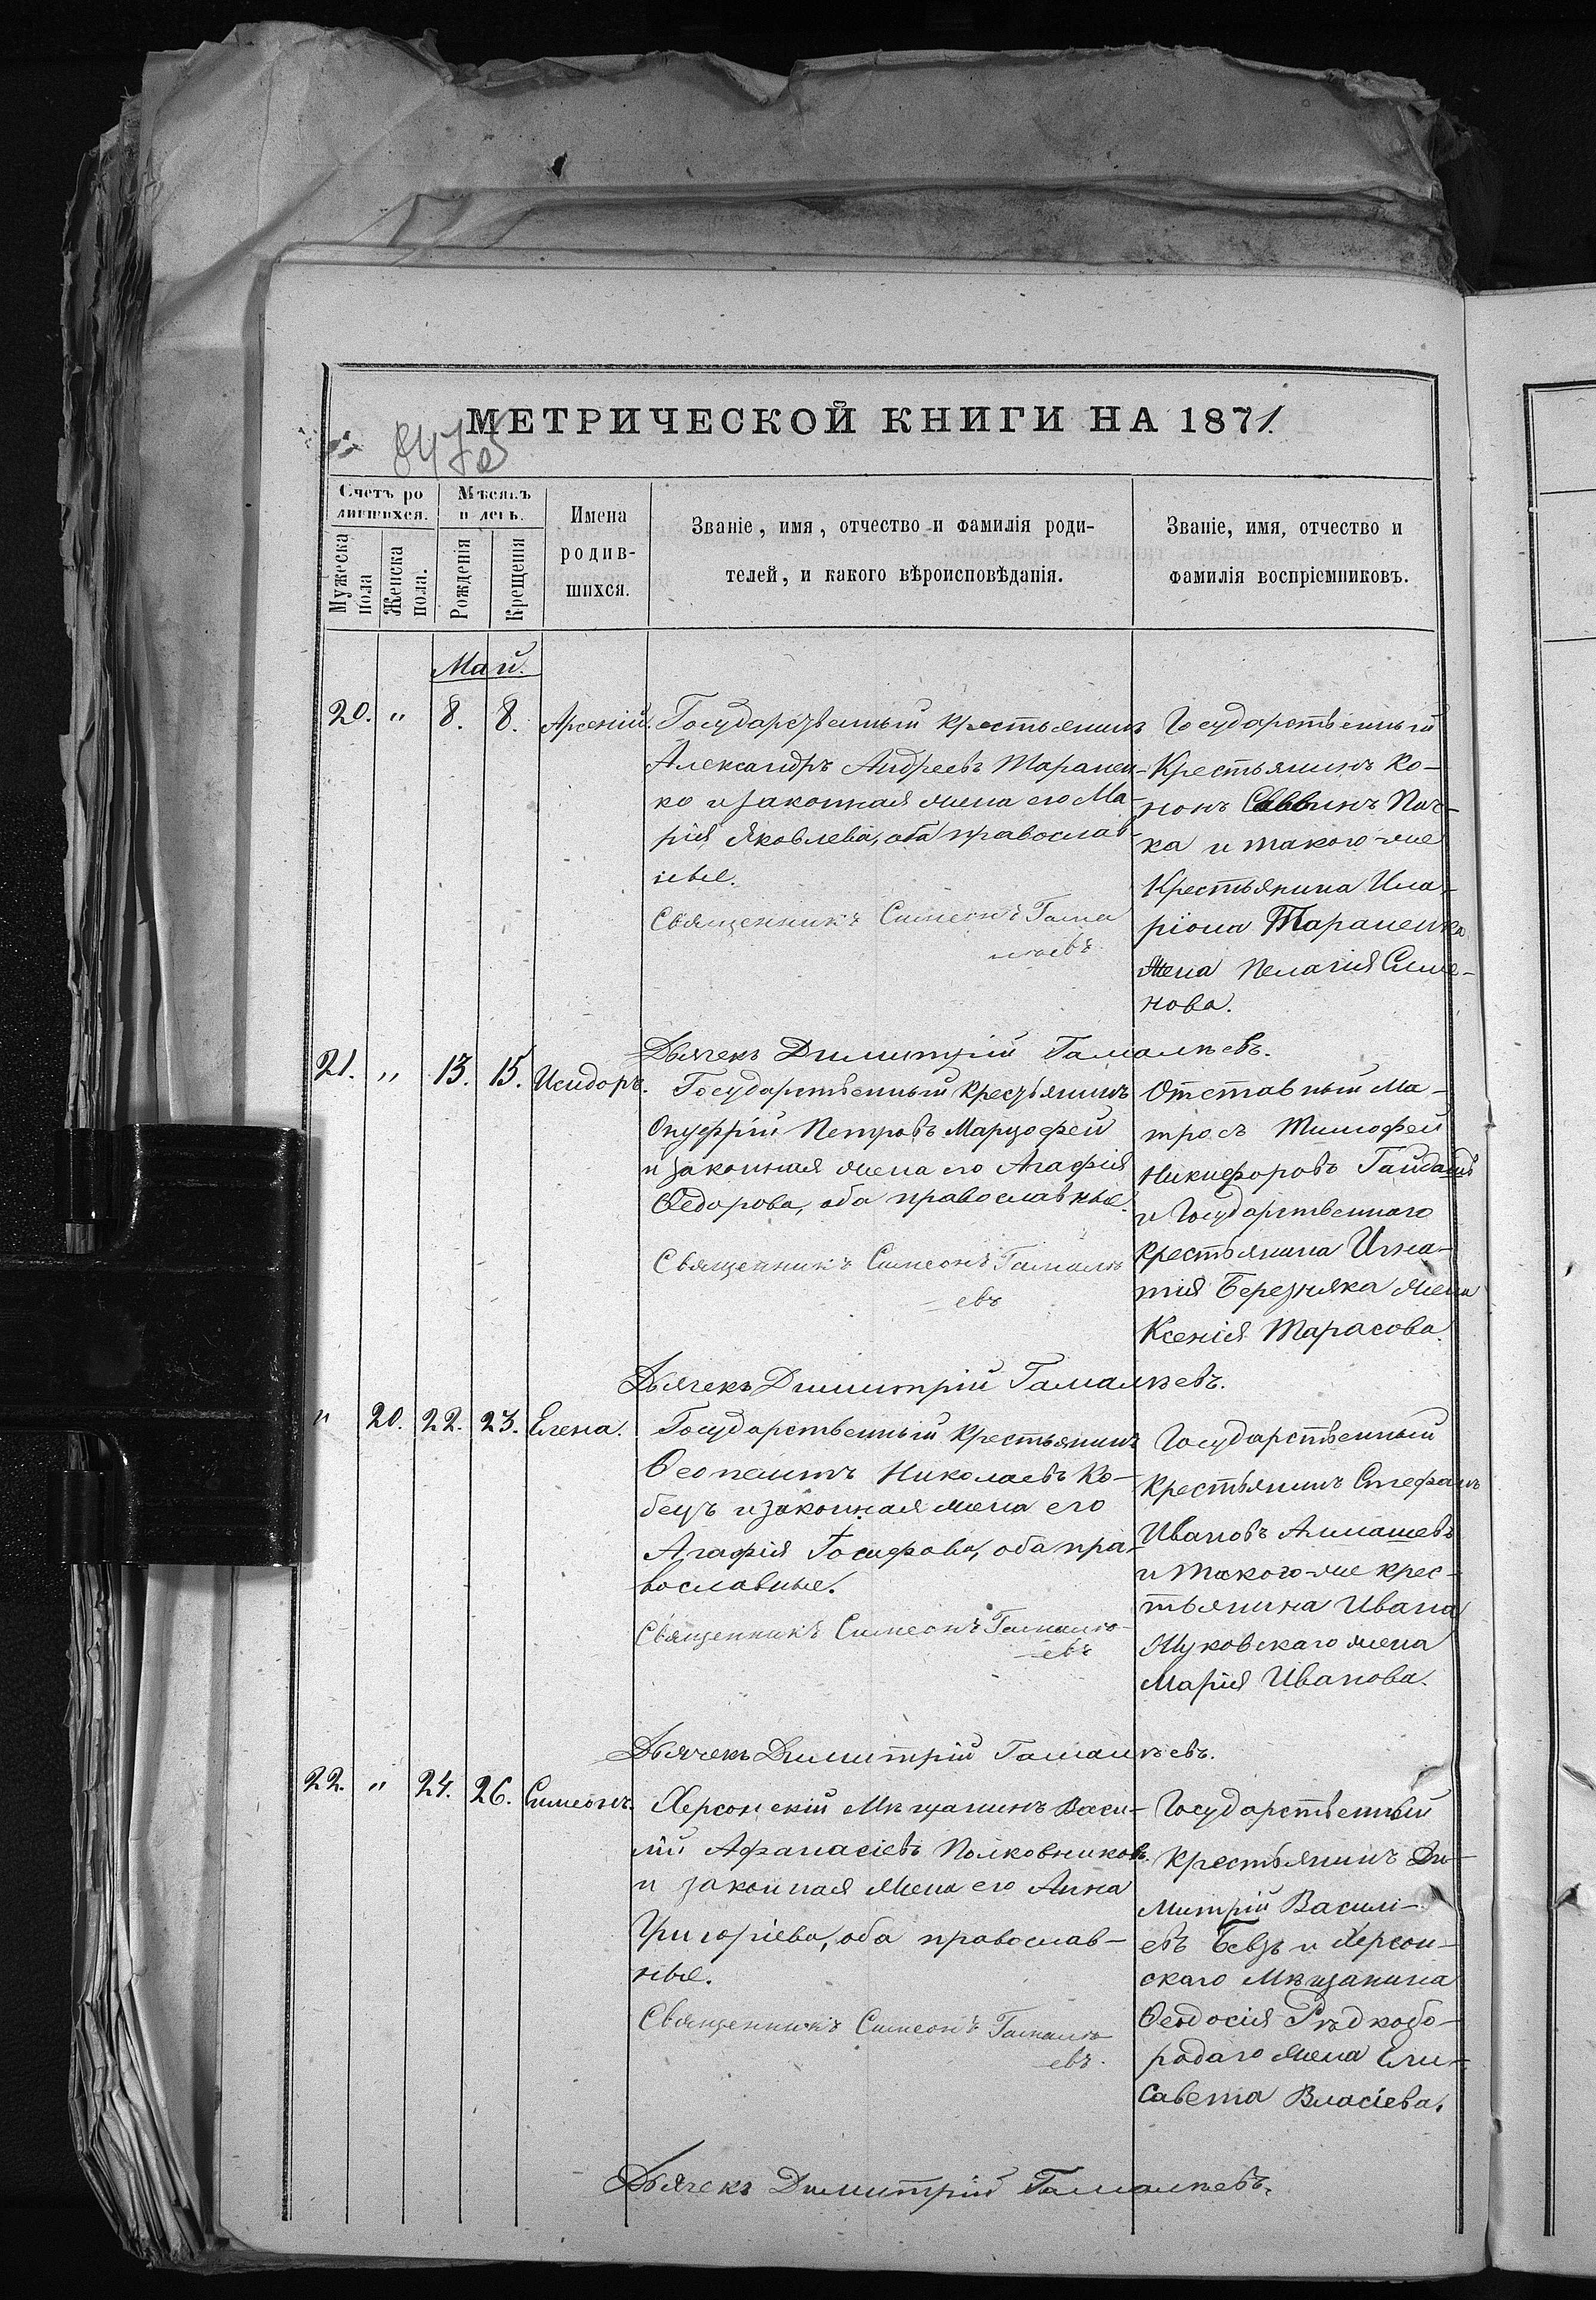 МЕТРИЧЕСКОЙ КНИГИ НА 1871.
847
Счетъ ро
дившихся.
Мужеска
пола
Женска
пола.
Мѣсяцъ
и день.
Рожденія
Крещенія
Имена
родив-
шихся.
Званіе, имя, отчество и фамилія роди-
телей, и какого вѣроисповѣданія.
Званіе, имя, отчество и
фамилія воспріемниковъ.
Май.
20. " 8. 8. Арсеній.
Государственный крестьянинъ
Александръ Андреевъ Таранен-
ко и законная жена его Ма-
рія Яковлева, оба православ-
ные.
Священникъ Симеонъ Гама
лѣевъ
Государственный
Крестьянинъ Ко-
нонъ Саввинъ Пач-
ка и такого-же
Крестьянина Ила-
ріона Тараненка
жена Пелагія Симе-
нова.
Дьячекъ Димитрій Гамалѣевъ.
21. " 13. 15. Исидоръ.
Государственный крестьянинъ
Онуфрій Петровъ Марцофей
и законная жена его Агафія
Ѳедорова, оба православные.
Священникъ Симеонъ Гамалѣ
евъ
Отставный Ма-
тросъ Тимофей
Никифоровъ Гайдашъ
и Государственнаго
крестьянина Игна-
тія Березняка жена
Ксенія Тарасова.
Дьячекъ Димитрій Гамалѣевъ.
" 20. 22. 23. Елена.
Государственный крестьянинъ
Ѳеопемптъ Николаевъ Ко-
бецъ и законная жена его
Агафія Іосифова, оба пра-
вославные.
Священникъ Симеонъ Гамалѣ-
евъ
Государственный
крестьянинъ Стефанъ
Ивановъ Алмашевъ
и такого-же крес-
тьянина Ивана
Жуковскаго жена
Марія Иванова.
Дьячекъ Димитрій Гамалѣевъ.
22. " 24. 26. Симеонъ.
Херсонскій Мѣщанинъ Васи-
лій Афанасіевъ Полковниковъ
и законная жена его Анна
Григоріева, оба православ-
ные.
Священникъ Симеонъ Гамалѣ
евъ.
Государственный
крестьянинъ Ди-
митрій Василі-
евъ Бевзъ и Херсон-
скаго Мѣщанина
Ѳеодосія Рѣдкобо-
родаго жена Ели-
савета Власіева.
Дьячекъ Димитрій Гамалѣевъ.